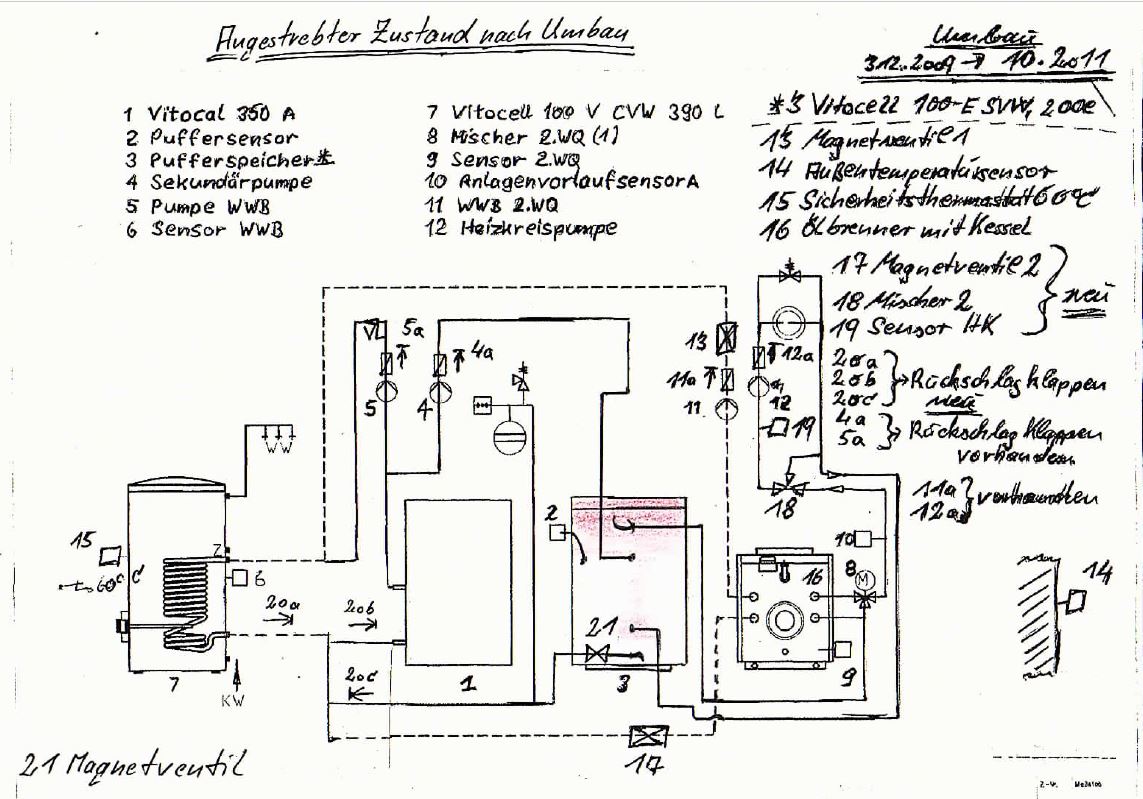 Angestrebter Zustand nach Umbau
Umbau
312.2009 → 10.2011
1 Vitocal 350 A
2 Puffersensor
3 Pufferspeicher*
4 Sekundärpumpe
5 Pumpe WWB
6 Sensor WWB
7 Vitocell 100 V CVW 390 L
8 Mischer 2.WQ (1)
9 Sensor 2.WQ
10 Anlagenvorlaufsensor A
11 WWB 2.WQ
12 Heizkreispumpe
*3 Vitocell 100-E SVW, 200l
13 Magnetventil 1
14 Außentemperatursensor
15 Sicherheitsthermostat 60°C
16 Ölbrenner mit Kessel
17 Magnetventil 2
18 Mischer 2
19 Sensor HK
neu
20a
20b
20c
Rückschlagklappen
neu
4a
5a
Rückschlagklappen
vorhanden
11a
12a
vorhanden
5a
4a
5
4
13
11a
11
12a
12
19
18
2
15
60°C
Z
6
20a
20b
20c
7
KW
1
21
3
16
10
8
M
9
14
17
21 Magnetventil